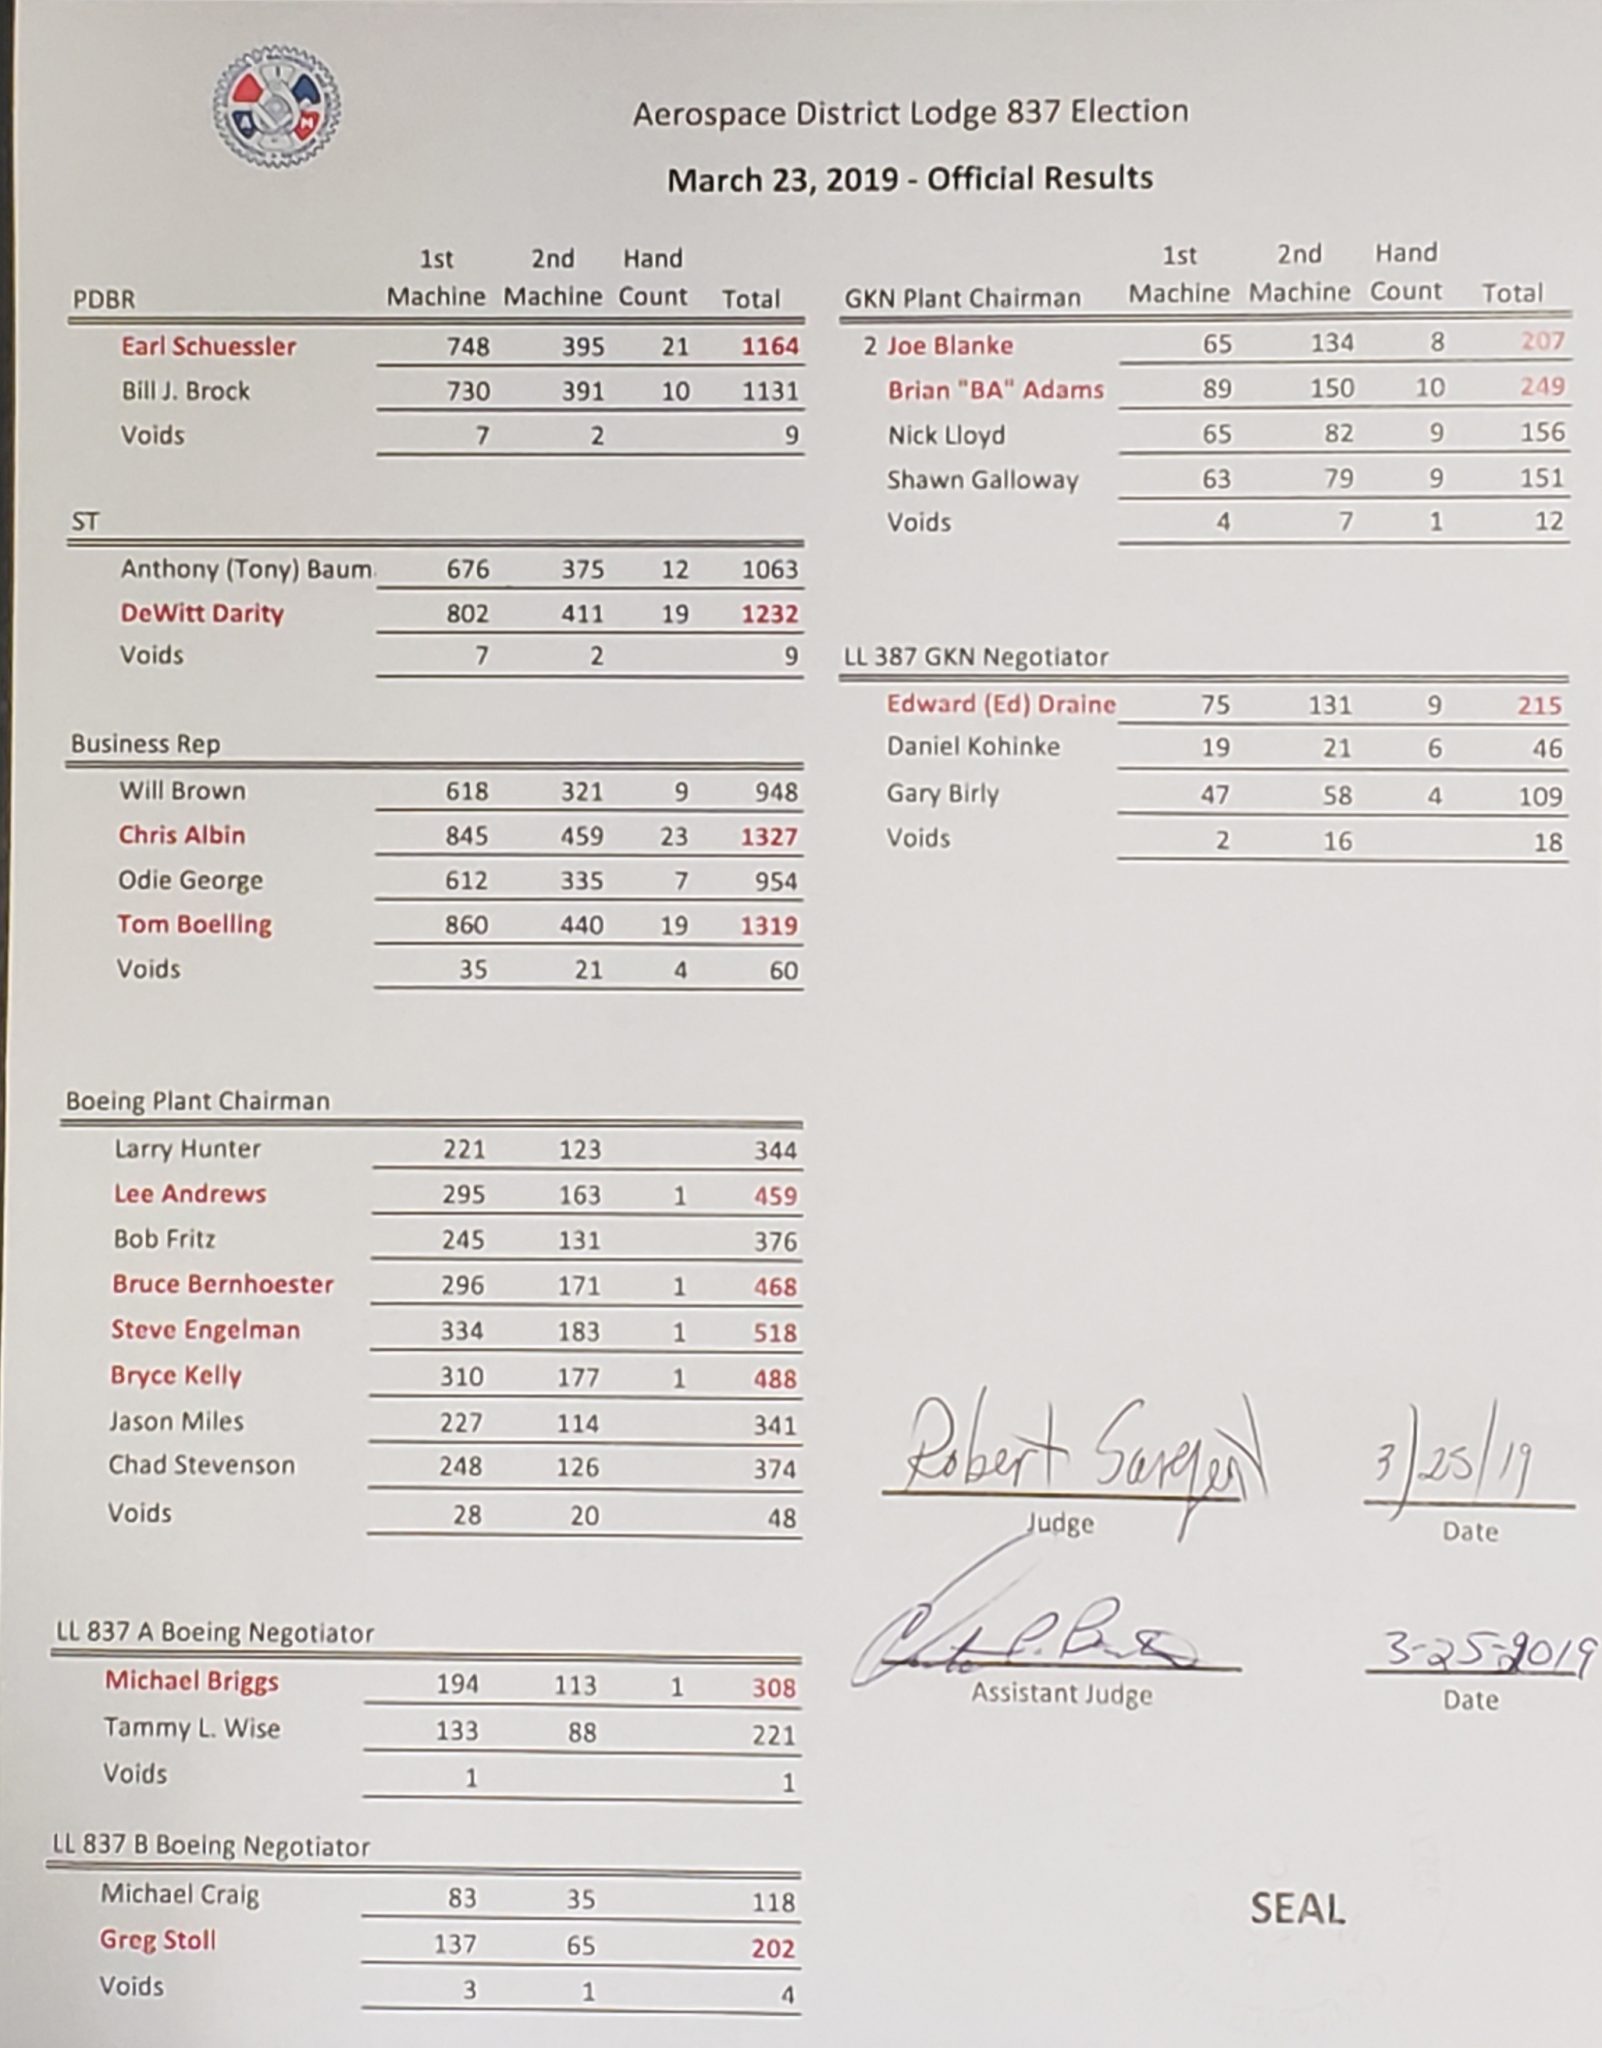 Aerospace District Lodge 837 Election
March 23, 2019 - Official Results
1st 2nd Hand
PDBR Machine Machine Count Total
Earl Schuessler 748 395 21 1164
Bill J. Brock 730 391 10 1131
Voids 7 2 9
ST
Anthony (Tony) Baum 676 375 12 1063
DeWitt Darity 802 411 19 1232
Voids 7 2 9
Business Rep
Will Brown 618 321 9 948
Chris Albin 845 459 23 1327
Odie George 612 335 7 954
Tom Boelling 860 440 19 1319
Voids 35 21 4 60
Boeing Plant Chairman
Larry Hunter 221 123 344
Lee Andrews 295 163 1 459
Bob Fritz 245 131 376
Bruce Bernhoester 296 171 1 468
Steve Engelman 334 183 1 518
Bryce Kelly 310 177 1 488
Jason Miles 227 114 341
Chad Stevenson 248 126 374
Voids 28 20 48
LL 837 A Boeing Negotiator
Michael Briggs 194 113 1 308
Tammy L. Wise 133 88 221
Voids 1 1
LL 837 B Boeing Negotiator
Michael Craig 83 35 118
Greg Stoll 137 65 202
Voids 3 1 4
1st 2nd Hand
GKN Plant Chairman Machine Machine Count Total
2 Joe Blanke 65 134 8 207
Brian "BA" Adams 89 150 10 249
Nick Lloyd 65 82 9 156
Shawn Galloway 63 79 9 151
Voids 4 7 1 12
LL 387 GKN Negotiator
Edward (Ed) Draine 75 131 9 215
Daniel Kohinke 19 21 6 46
Gary Birly 47 58 4 109
Voids 2 16 18
Robert Sargent 3/25/19
Judge Date
3-25-2019
Assistant Judge Date
SEAL